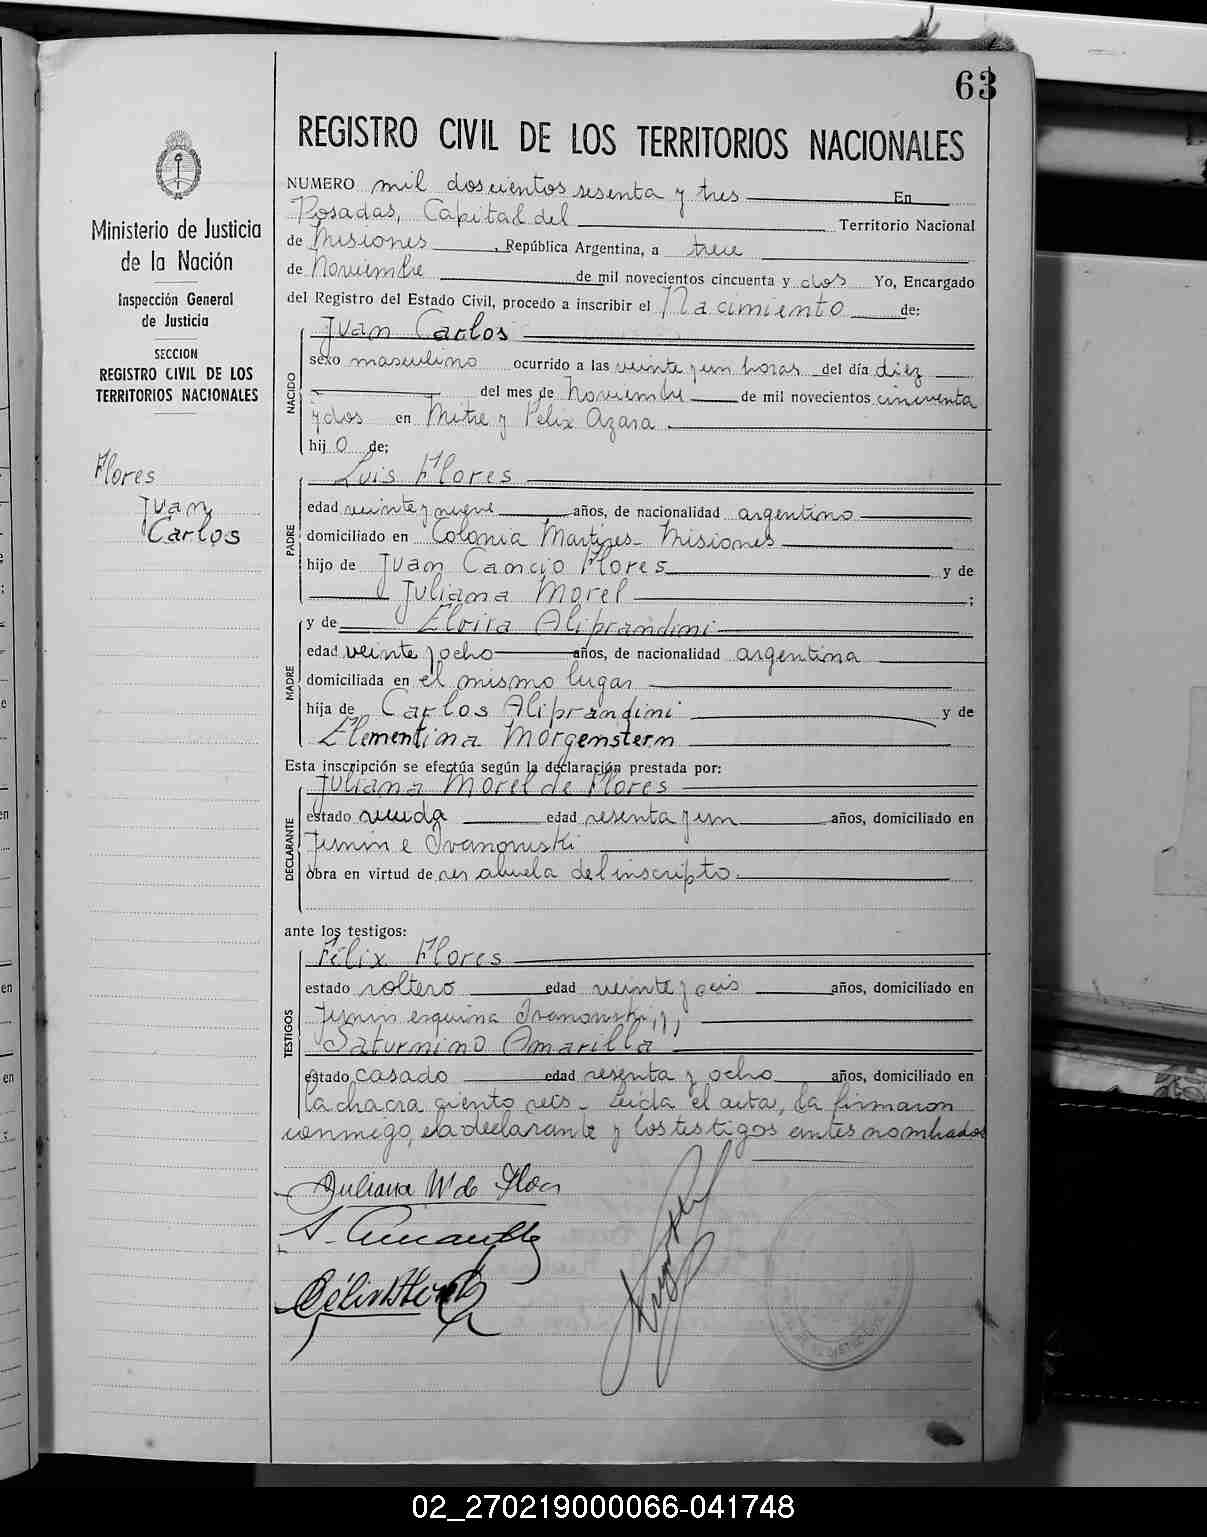 63
REGISTRO CIVIL DE LOS TERRITORIOS NACIONALES
Ministerio de Justicia
de la Nación
Inspección General
de Justicia
SECCION
REGISTRO CIVIL DE LOS
TERRITORIOS NACIONALES
Flores
Juan
Carlos
NUMERO mil doscientos sesenta y tres En
Posadas, Capital del Territorio Nacional
de Misiones, República Argentina, a trece
de Noviembre de mil novecientos cincuenta y dos Yo, Encargado
del Registro del Estado Civil, procedo a inscribir el Nacimiento de:
NACIDO
Juan Carlos
sexo masculino ocurrido a las veinte y un horas del día diez
del mes de Noviembre de mil novecientos cincuenta
y dos en Mitre y Felix Azara
hij o de:
PADRE
Luis Flores
edad veinte y nueve años, de nacionalidad argentino
domiciliado en Colonia Martires - Misiones
hijo de Juan Cancio Flores y de
Juliana Morel ;
MADRE
y de Elvira Aliprandini
edad veinte y ocho años, de nacionalidad argentina
domiciliada en el mismo lugar
hija de Carlos Aliprandini y de
Elementina Morgenstern
Esta inscripción se efectúa según la declaración prestada por:
DECLARANTE
Juliana Morel de Flores
estado viuda edad sesenta y un años, domiciliado en
Junin e Ivanowski
obra en virtud de ser abuela del inscripto.
ante los testigos:
TESTIGOS
Félix Flores
estado soltero edad veinte y seis años, domiciliado en
Junin esquina Ivanowski, y,
Saturnino Amarilla
estado casado edad sesenta y ocho años, domiciliado en
la chacra ciento seis - Leida el acta, la firmaron
conmigo, la declarante y los testigos antes nombrados
Juliana M de Flores
S. Amarilla
Félix Flores
02_270219000066-041748